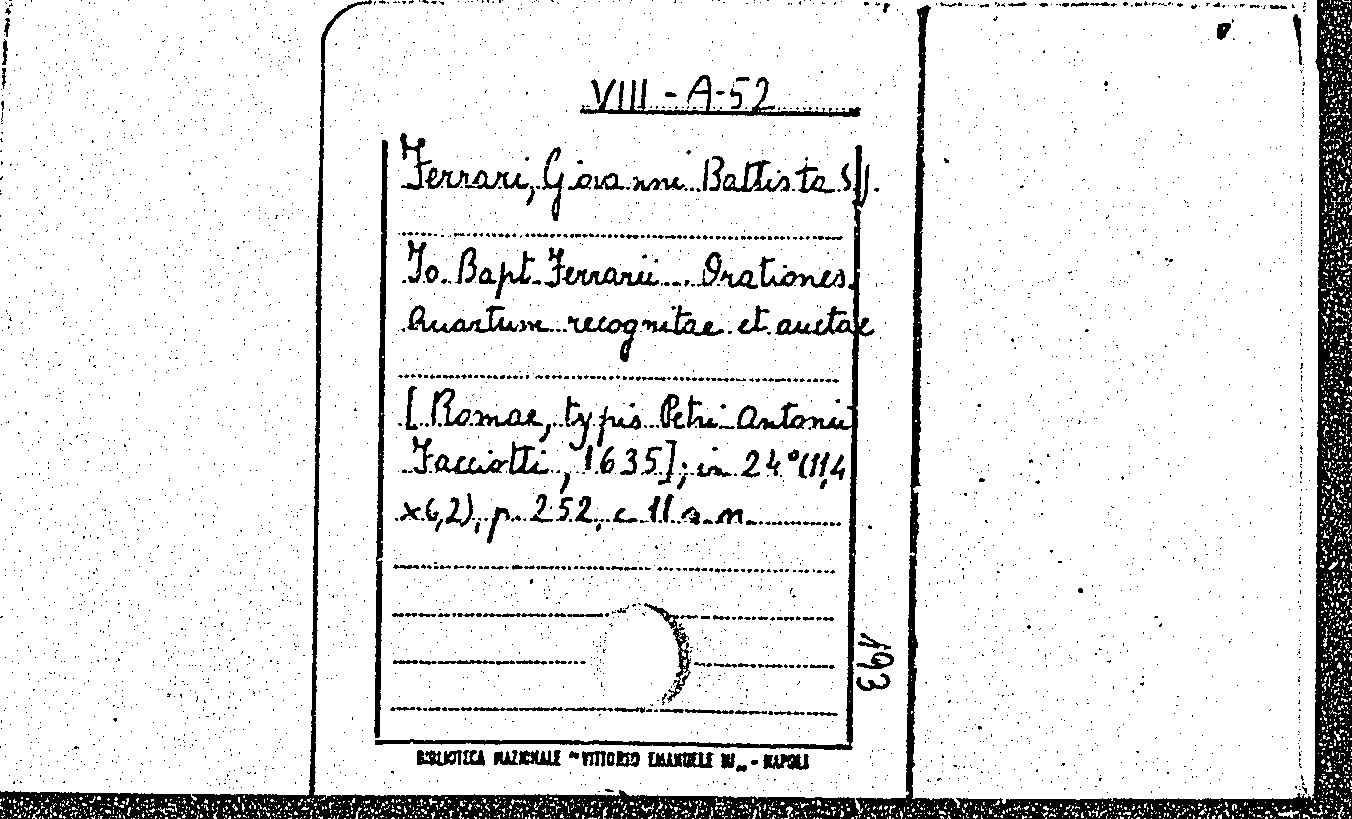 VIII - A-52
Ferrari, Giovanni Battista S.J.
Jo. Bapt. Ferrarii ... Orationes
Quartum recognitae et auctae
[Romae, typis Petri Antonii
Facciotti, 1635]; in 24° (11,4
x6,2), p. 252, c 11 n. n.
193
BIBLIOTECA NAZIONALE "VITTORIO EMANUELE III„ - NAPOLI